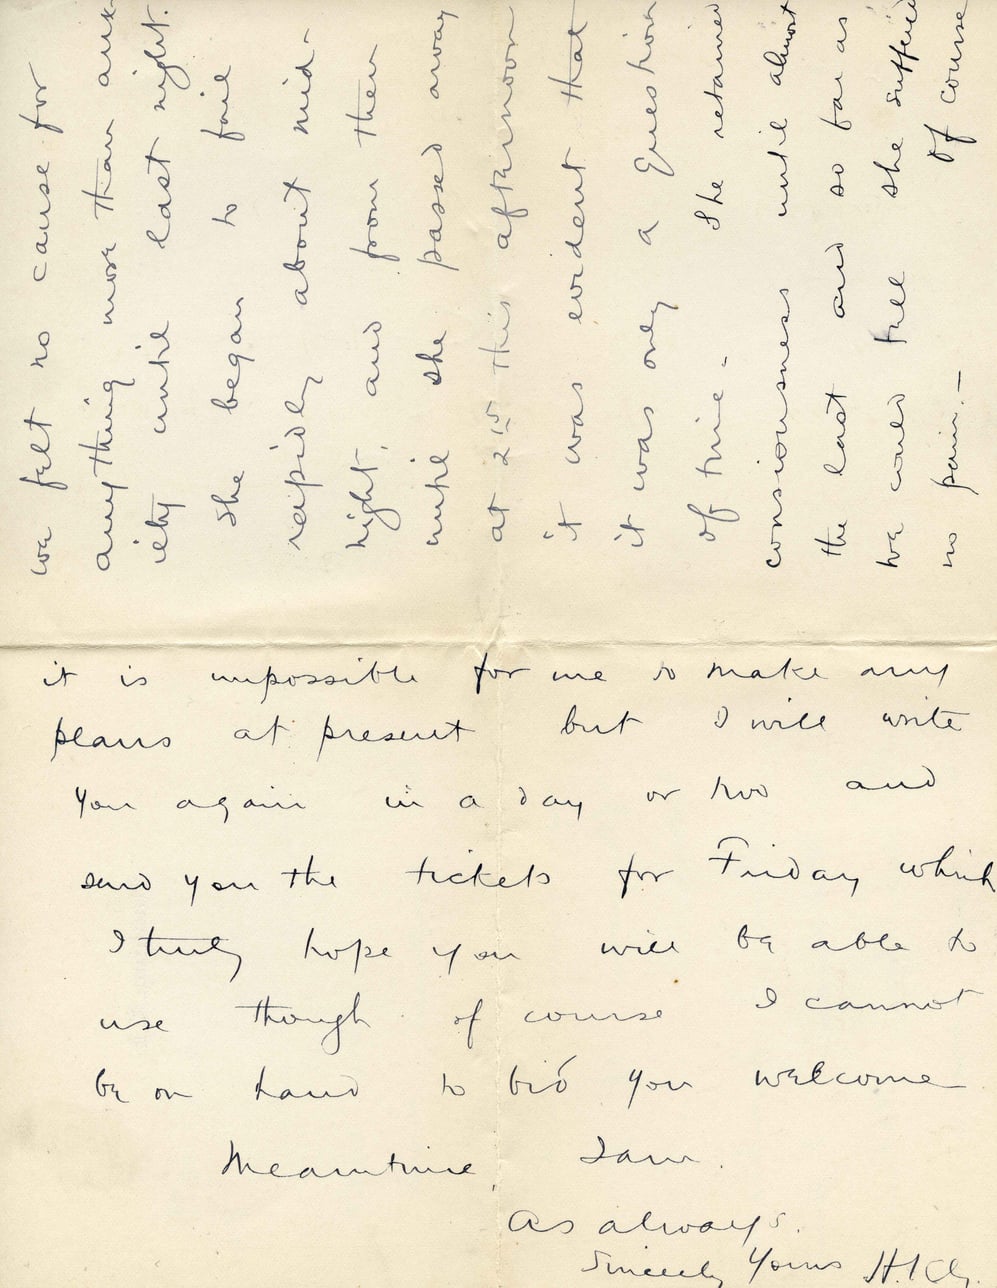 we felt no cause for
anything more than anx-
iety until last night.
She began to fail
rapidly about mid-
night, and from then
until she passed away
at 2 15 this afternoon
it was evident that
it was only a question
of time - She retained
consiousness until almost
the last and so far as
we could tell she suffered
no pain. — Of course
it is impossible for me to make any
plans at present but I will write
you again in a day or two and
send you the tickets for Friday which
I truly hope you will be able to
use though of course I cannot
be on hand to bid you welcome
Meantime, I am.
As always.
Sincerely Yours